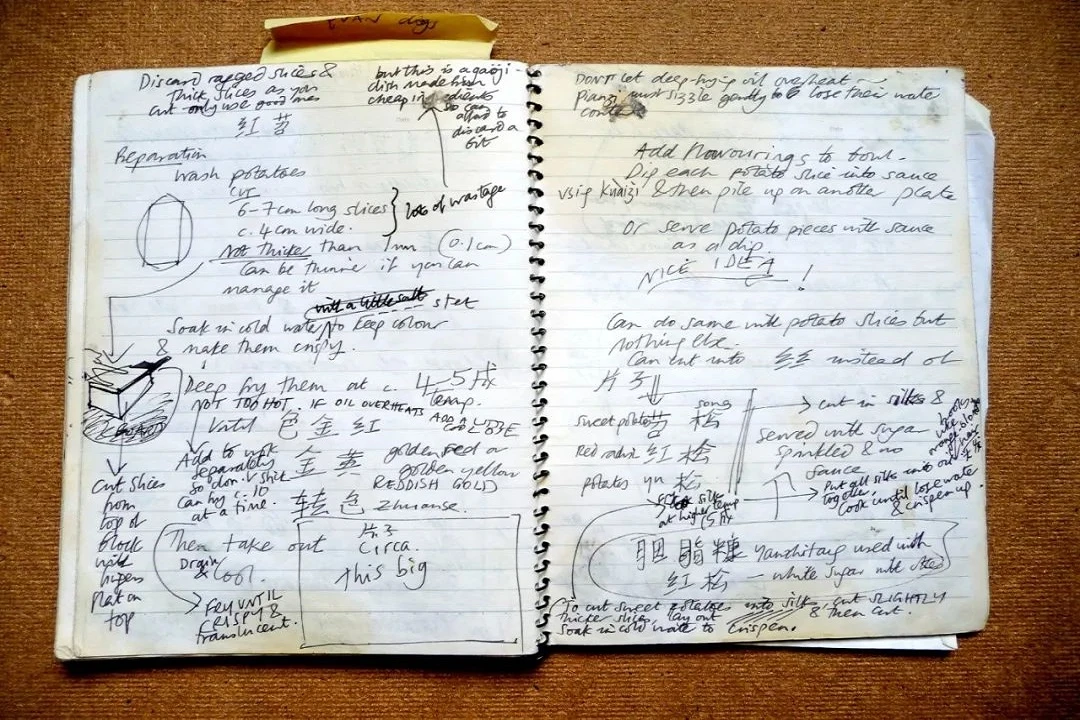 YUAN digs
Discard ragged slices &
thick slices as you
cut - only use good ones
红苕
but this is a gaoji
dish made from
cheap ingredients
so can
afford to
discard a
bit
Preparation
wash potatoes
cut
6-7cm long slices
c. 4cm wide.
lots of wastage
Not Thicker than 1mm (0.1cm)
Can be thinner if you can
manage it
with a little salt stet
Soak in cold water to keep colour
& make them crispy.
Deep fry them at c. 4-5成
temp.
NOT TOO HOT. IF OIL OVERHEATS ADD
COLD
Until 色金红
Add to wok
separately
so don't stick
Can fry c. 10
at a time.
金黄
golden red or
golden yellow
REDDISH GOLD
转色 zhuanse.
cut slices
from
top of
block
with
flat on
top
Then take out
Drain
& cool.
FRY UNTIL
CRISPY &
translucent.
片子
Circa.
this big
DON'T let deep-frying oil overheat -
pianzi must sizzle gently to lose their water
content
Add flavourings to bowl.
Dip each potato slice into sauce
using kuaizi & then pile up on another plate
Or serve potato pieces with sauce
as a dip.
NICE IDEA!
Can do same with potato slices but
nothing else.
Can cut into 丝 instead of
片子
sweet potato 苕 松 song
Red radish 红 松
potatoes yu 松
cut in silks &
served with sugar
sprinkled & no
sauce
Put all silks into oil
together.
Cook until lose water
& crispen up.
silks
at higher temp
(5成
胭脂糖 yanzhitang used with
红松 - white sugar with
To cut sweet potatoes into silk, cut SLIGHTLY
thicker slices, lay out & then cut.
Soak in cold water to crispen.